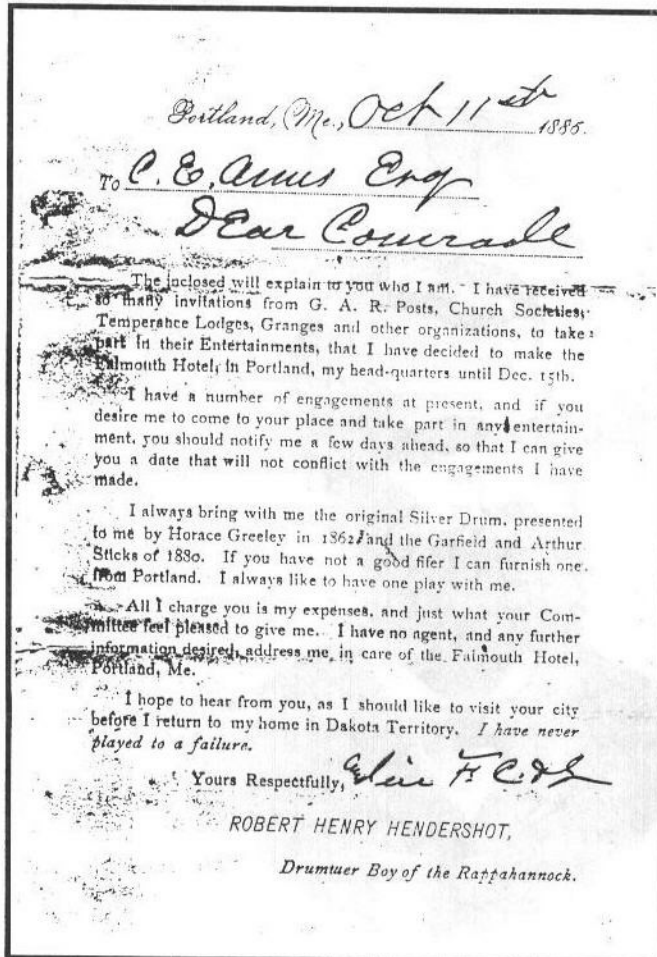 Portland, Me., Oct 11sth 1885.
To C. E. Ames Esq
Dear Comrade
The inclosed will explain to you who I am. I have received
so many invitations from G. A. R. Posts, Church Societies,
Temperance Lodges, Granges and other organizations, to take
part in their Entertainments, that I have decided to make the
Falmouth Hotel, in Portland, my head-quarters until Dec. 15th.
I have a number of engagements at present, and if you
desire me to come to your place and take part in any entertain-
ment, you should notify me a few days ahead, so that I can give
you a date that will not conflict with the engagements I have
made.
I always bring with me the original Silver Drum, presented
to me by Horace Greeley in 1862, and the Garfield and Arthur
Sticks of 1880. If you have not a good fifer I can furnish one
from Portland. I always like to have one play with me.
All I charge you is my expenses, and just what your Com-
mittee feel pleased to give me. I have no agent, and any further
information desired, address me in care of the Falmouth Hotel,
Portland, Me.
I hope to hear from you, as I should like to visit your city
before I return to my home in Dakota Territory. I have never
played to a failure.
Yours Respectfully,
ROBERT HENRY HENDERSHOT,
Drummer Boy of the Rappahannock.